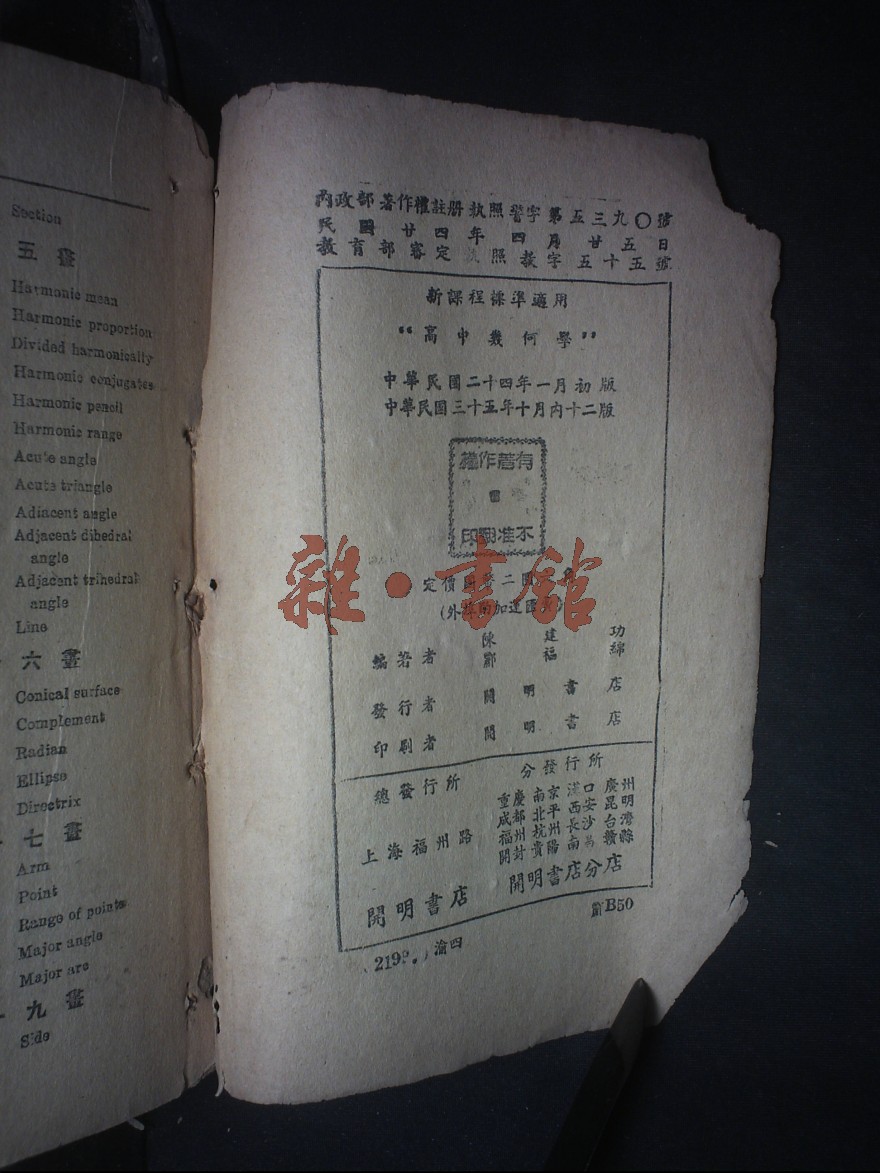 Section
五畫
Harmonic mean
Harmonic proportion
Divided harmonically
Harmonic conjugates
Harmonic pencil
Harmonic range
Acute angle
Acute triangle
Adjacent angle
Adjacent dihedral
angle
Adjacent trihedral
angle
Line
六畫
Conical surface
Complement
Radian
Ellipse
Directrix
七畫
Arm
Point
Range of points
Major angle
Major arc
九畫
Side
內政部著作權註册執照警字第五三九〇號
民國廿四年四月廿五日
教育部審定執照教字五十五號
新課程標準適用
“高中幾何學”
中華民國二十四年一月初版
中華民國三十五年十月內十二版
有著作權
不准翻印
雜·書館
定價國幣二圓
(外埠酌加運匯費)
編著者 陳建功 酈福綿
發行者 開明書店
印刷者 開明書店
總發行所
上海福州路
開明書店
分發行所
重慶 南京 漢口 廣州
成都 北平 西安 昆明
福州 杭州 長沙 台灣
開封 貴陽 南昌 贛縣
開明書店分店
B50
渝四